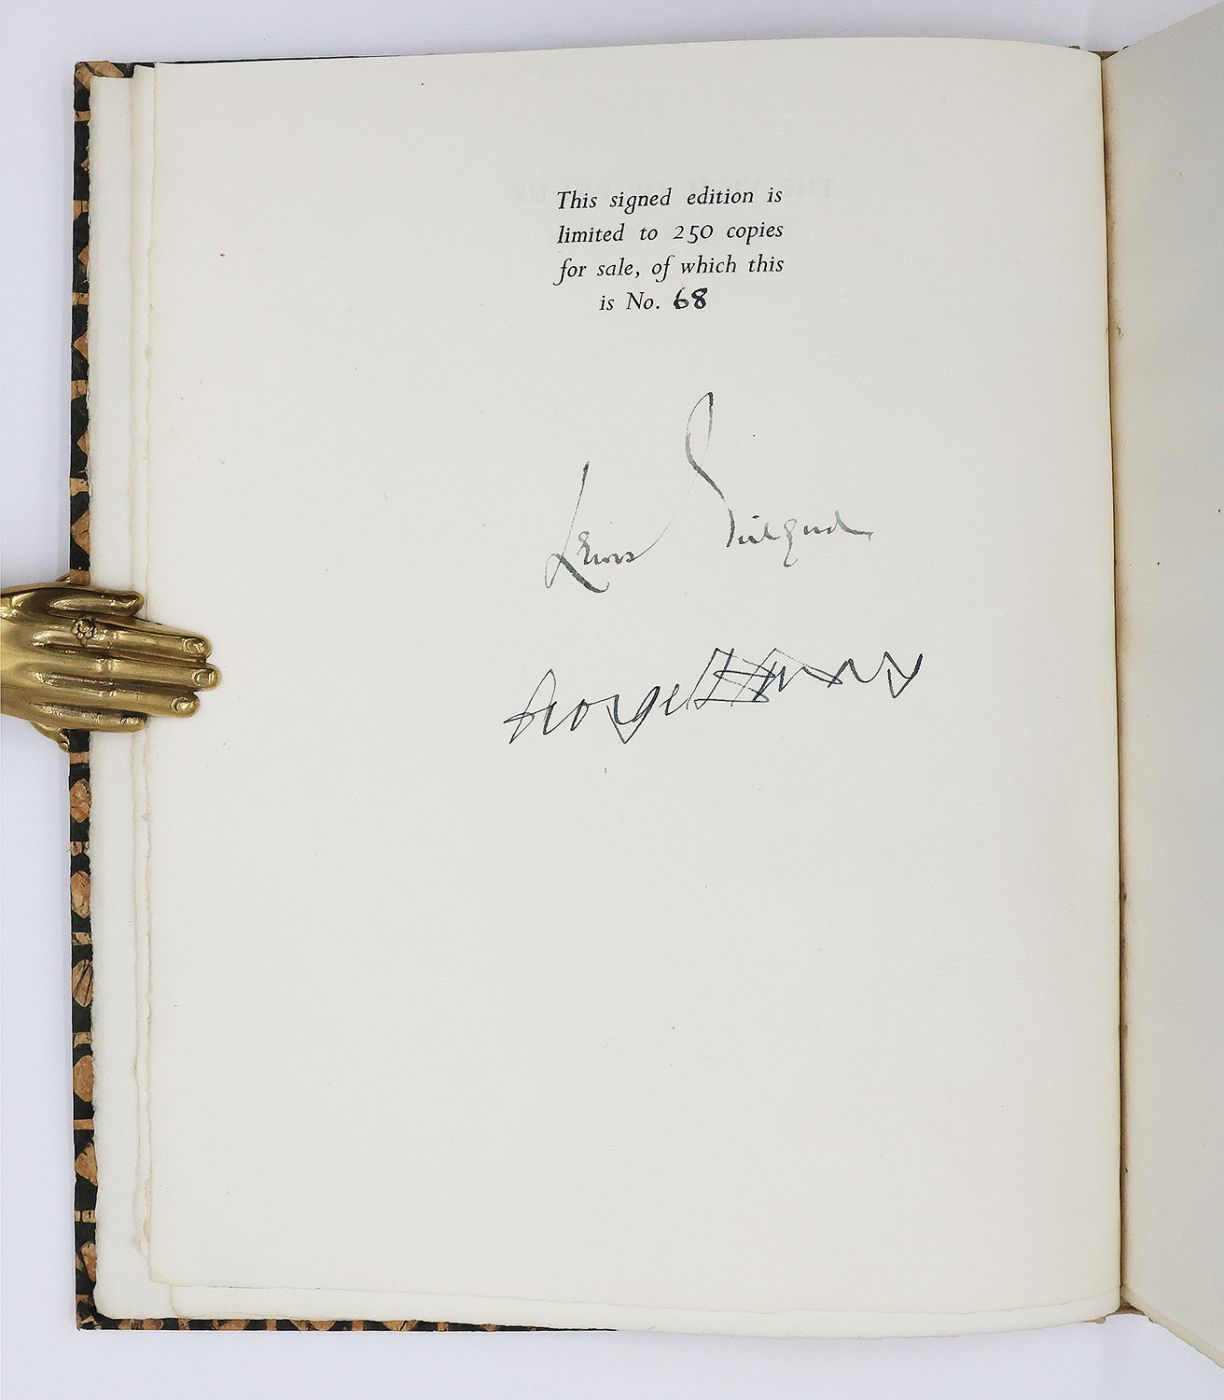 This signed edition is
limited to 250 copies
for sale, of which this
is No. 68
Lewis Gielgud
George